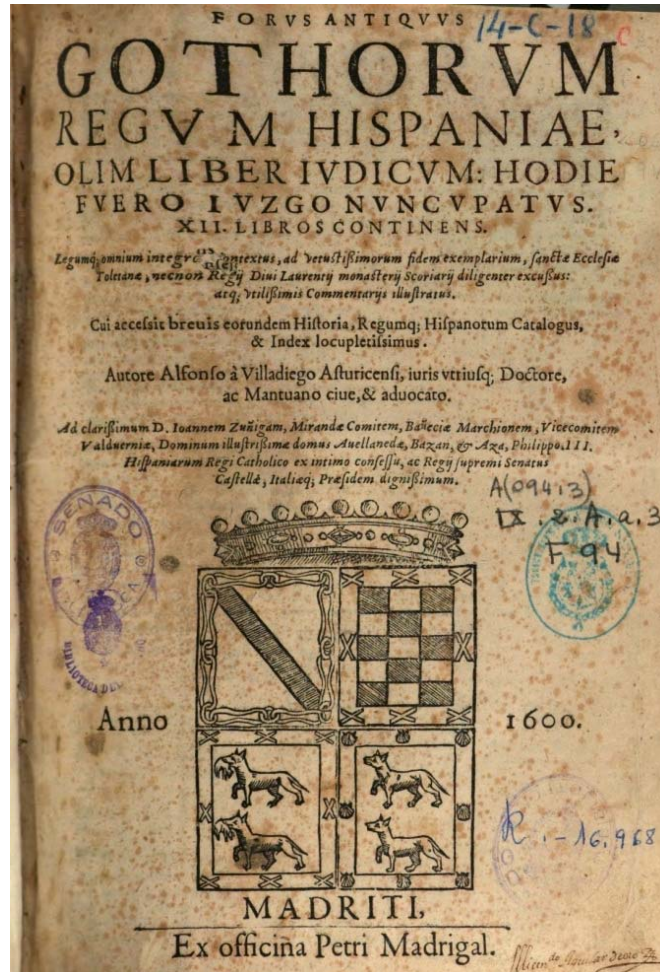 FORVS ANTIQVVS
14-C-18
GOTHORVM
REGVM HISPANIAE,
OLIM LIBER IVDICVM: HODIE
FVERO IVZGO NVNCVPATVS.
XII. LIBROS CONTINENS.
Legumq; omnium integrè contextus, ad vetustißimorum fidem exemplarium, sanctæ Ecclesiæ
Toletanæ, necnon Regij Diui Laurentij monasterij Scoriarij diligenter excußus:
atq; vtilißimis Commentarijs illustratus.
Cui accessit breuis eorundem Historia, Regumq; Hispanorum Catalogus,
& Index locupletissimus.
Autore Alfonso à Villadiego Asturicensi, iuris vtriusq; Doctore,
ac Mantuano ciue, & aduocato.
Ad clarißimum D. Ioannem Zuñigam, Mirandæ Comitem, Bañeciæ Marchionem, Vicecomitem
Valduerniæ, Dominum illustrißimæ domus Auellanedæ, Bazan, & Aza, Philippo. III.
Hispaniarum Regi Catholico ex intimo consessu, ac Regij supremi Senatus
Castellæ, Italiæq; Præsidem dignißimum.
A(094.3)
IX. 2. A. a. 3
F 94
SENADO
BIBLIOTECA DEL
Anno 1600.
R.-16.968
MADRITI,
Ex officina Petri Madrigal.